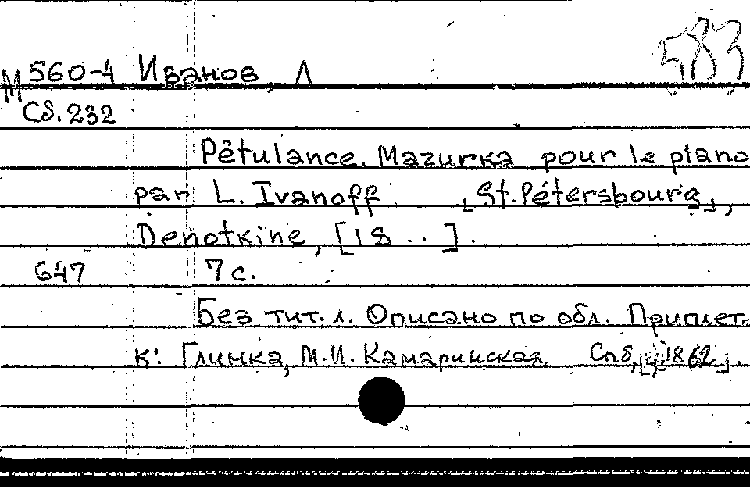 583
М 560-4 Иванов, Л
Сб. 232
Pétulance. Mazurka pour le piano
par L. Ivanoff. [St. Pétersbourg],
Denotkine, [18 . . ].
647 7 с.
Без тит. л. Описано по обл. Приплет.
к: Глинка, М.И. Камаринская. Спб, 1862.